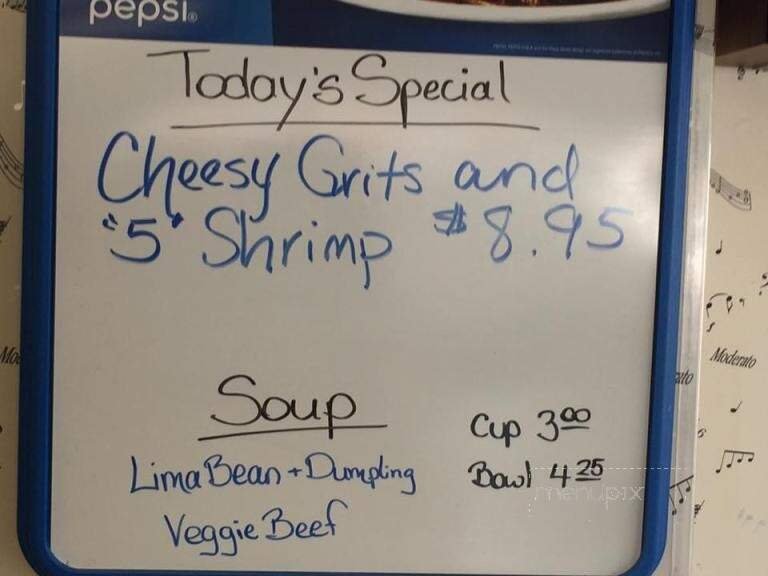 pepsi®
Today's Special
Cheesy Grits and
"5" Shrimp $8.95
Soup
Cup 3.00
Lima Bean + Dumpling
Bowl 4.25
Veggie Beef
Moderato
menupix